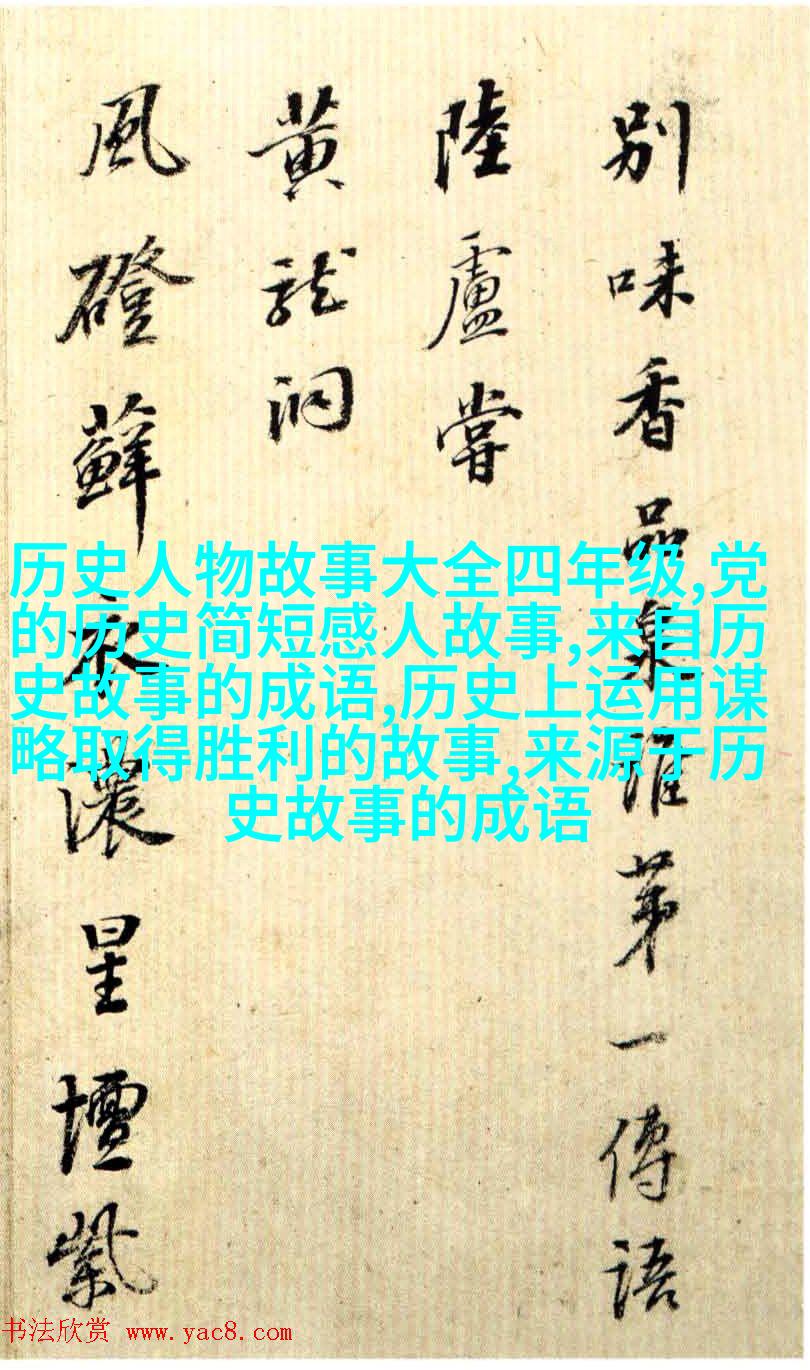 别味香品泉谁第一传语
陸盧嘗
黄龍洞
風磴蘚衣濃星壇紫
历史人物故事大全四年级,党
的历史简短感人故事,来自历
史故事的成语,历史上运用谋
略取得胜利的故事,来源于历
史故事的成语
书法欣赏 www.yac8.com